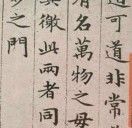 道可道非常
名萬物之母
徼此兩者同
之門